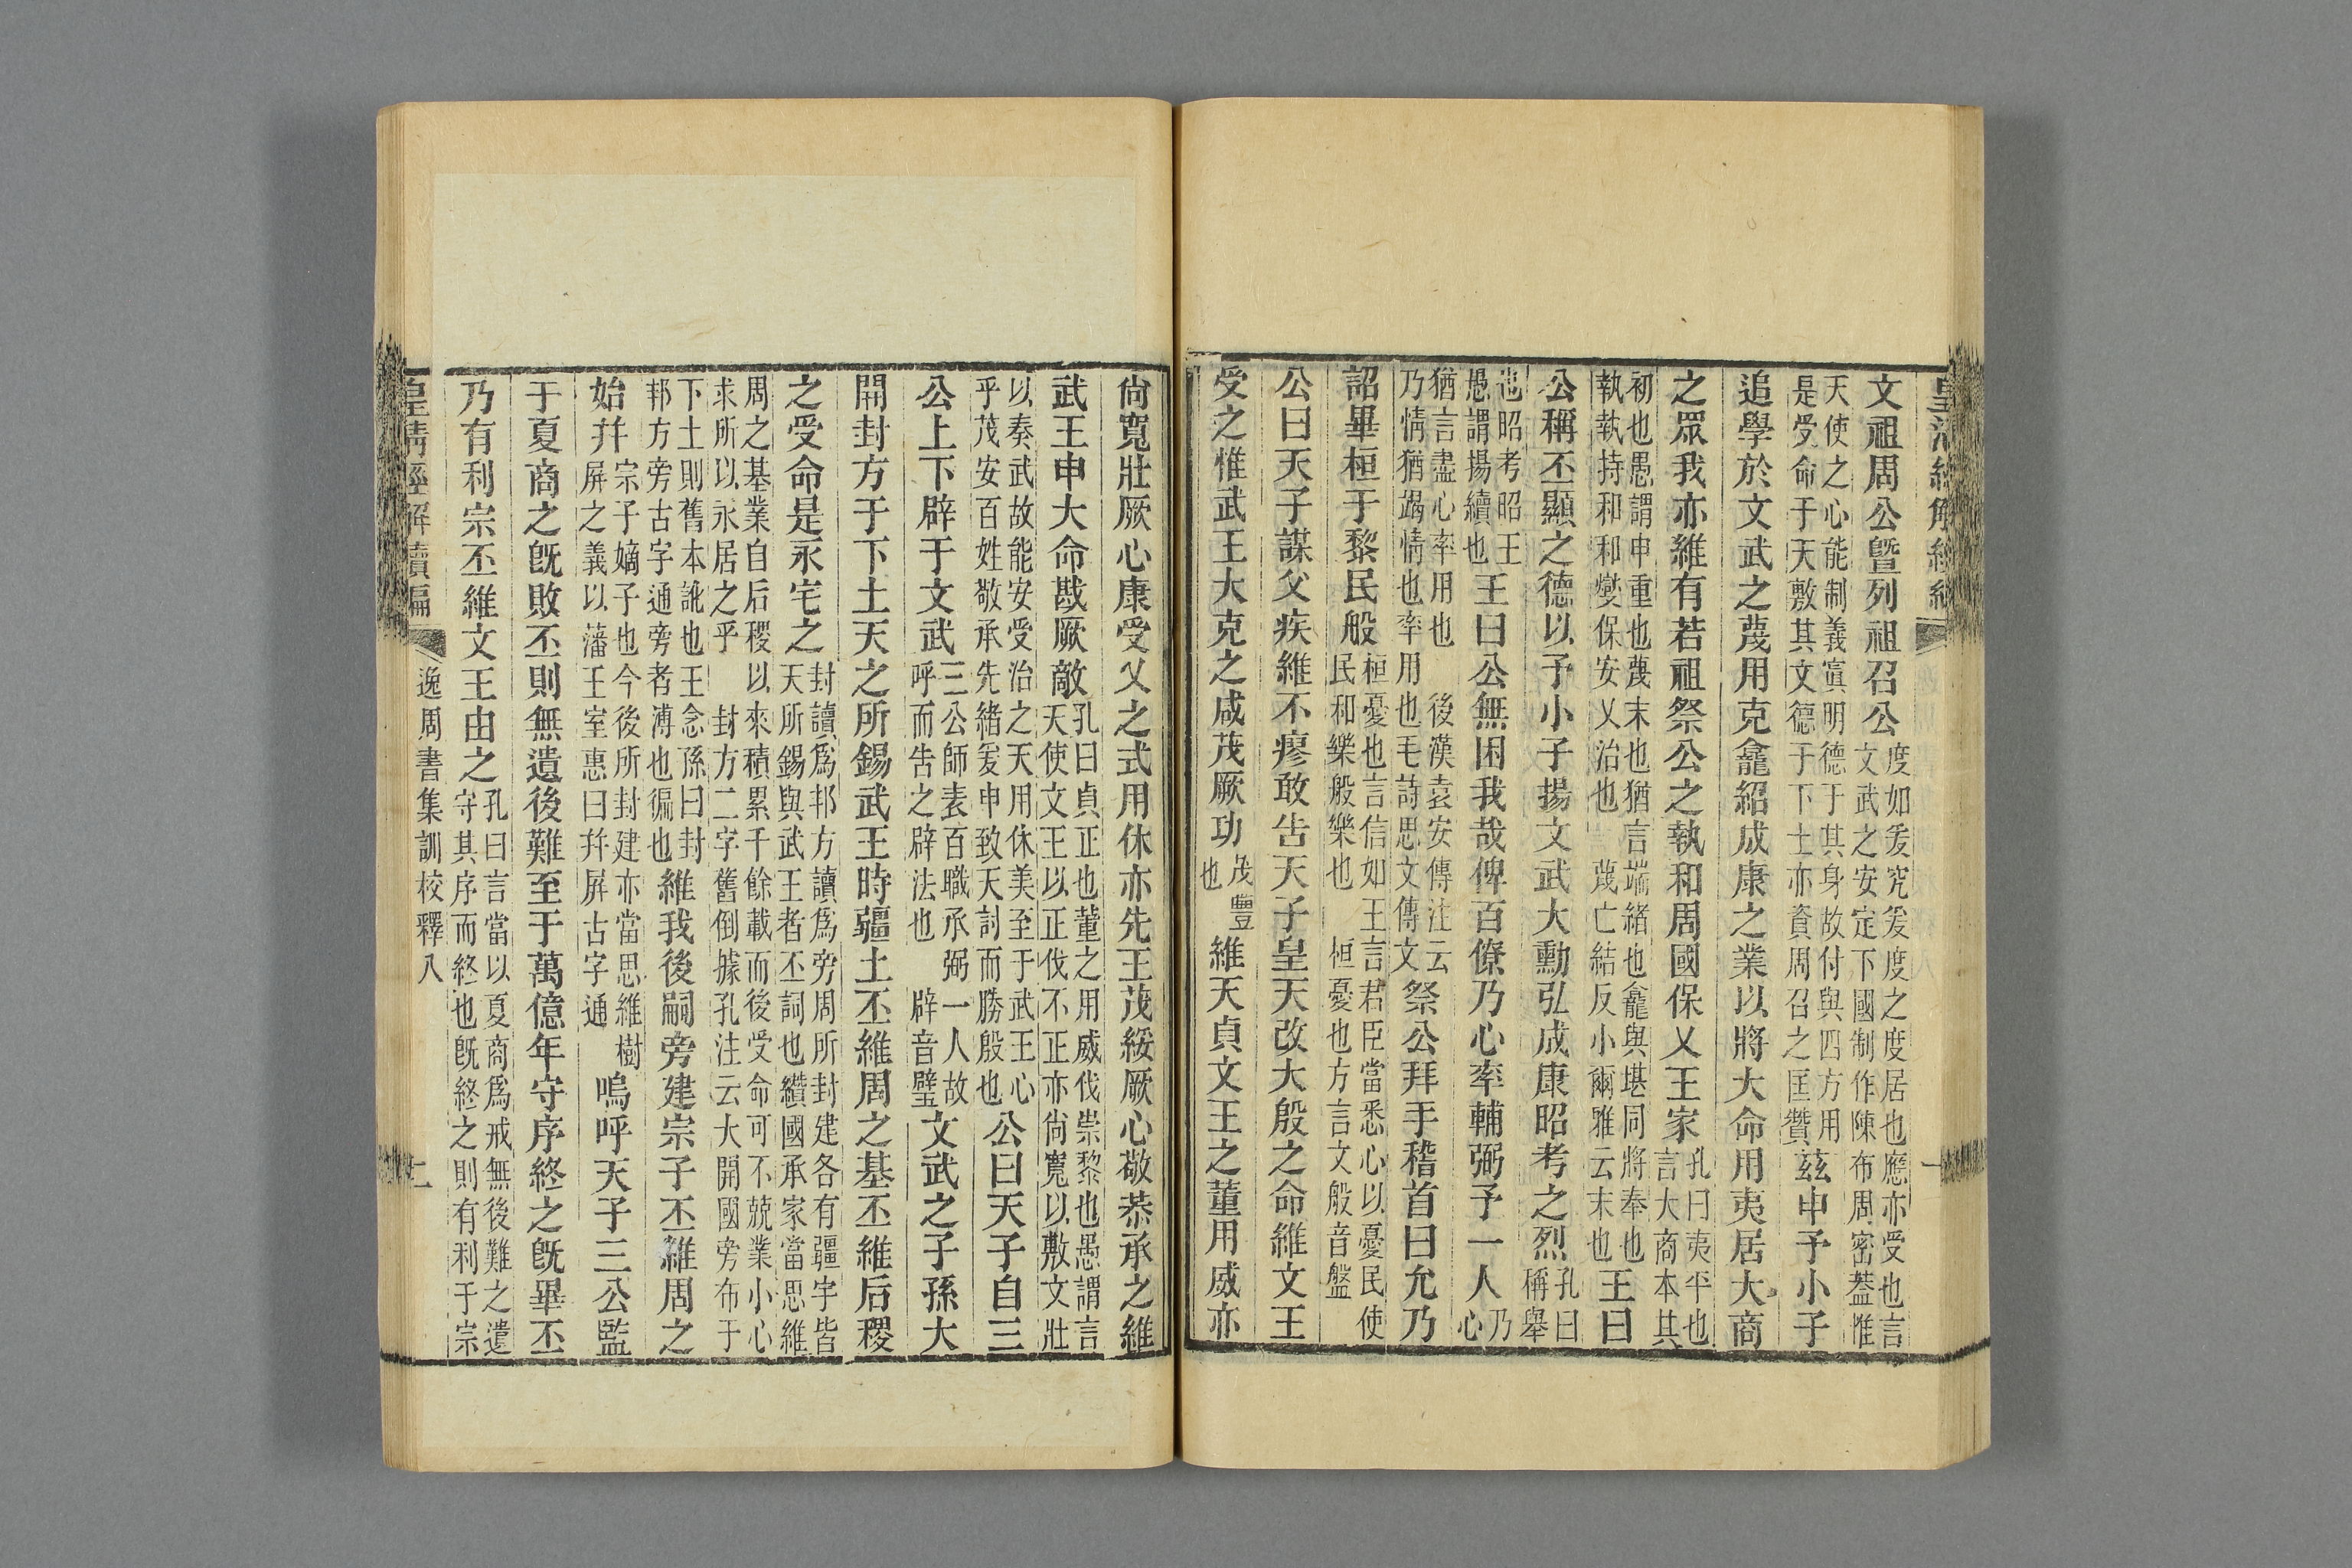 皇清經解續編 一
文祖周公曁列祖召公度如爰究爰度之度居也應亦受也言文武之安定下國制作陳布周密葢惟
天使之心能制義寘明德于其身故付與四方用是受命于天敷其文德于下土亦資周召之匡贊茲申予小子
追學於文武之蔑用克龕紹成康之業以將大命用夷居大商
之眾我亦維有若祖祭公之執和周國保乂王家孔曰夷平也言大商本其
初也愚謂申重也蔑末也猶言端緒也龕與堪同將奉也執執持和和燮保安乂治也 蔑亡結反小爾雅云末也王曰
公稱丕顯之德以予小子揚文武大勳弘成康昭考之烈孔曰稱舉
也昭考昭王愚謂揚續也王曰公無困我哉俾百僚乃心率輔弼予一人乃心
猶言盡心率用也 後漢袁安傳注云乃情猶竭情也率用也毛詩思文傳文祭公拜手稽首曰允乃
詔畢桓于黎民般桓憂也言信如王言君臣當悉心以憂民使民和樂般樂也 桓憂也方言文般音盤
公曰天子謀父疾維不瘳敢告天子皇天改大殷之命維文王
受之惟武王大克之咸茂厥功茂豐也維天貞文王之董用威亦
尙寬壯厥心康受乂之式用休亦先王茂綏厥心敬恭承之維
武王申大命戡厥敵孔曰貞正也董之用威伐崇黎也愚謂言天使文王以正伐不正亦尙寬以敷文壯
以奏武故能安受治之天用休美至于武王心乎茂安百姓敬承先緒爰申致天討而勝殷也公曰天子自三
公上下辟于文武三公師表百職承弼一人故呼而告之辟法也 辟音璧文武之子孫大
開封方于下土天之所錫武王時疆土丕維周之基丕維后稷
之受命是永宅之封讀爲邦方讀爲旁周所封建各有疆宇皆天所錫與武王者丕詞也纘國承家當思維
周之基業自后稷以來積累千餘載而後受命可不兢業小心求所以永居之乎 封方二字舊倒據孔注云大開國旁布于
下土則舊本訛也王念孫曰封邦方旁古字通旁者溥也徧也維我後嗣旁建宗子丕維周之
始幷宗子嫡子也今後所封建亦當思維樹屏之義以藩王室惠曰幷屏古字通嗚呼天子三公監
于夏商之旣敗丕則無遺後難至于萬億年守序終之旣畢丕
乃有利宗丕維文王由之孔曰言當以夏商爲戒無後難之遺守其序而終也旣終之則有利于宗
皇清經解續編 逸周書集訓校釋八 二